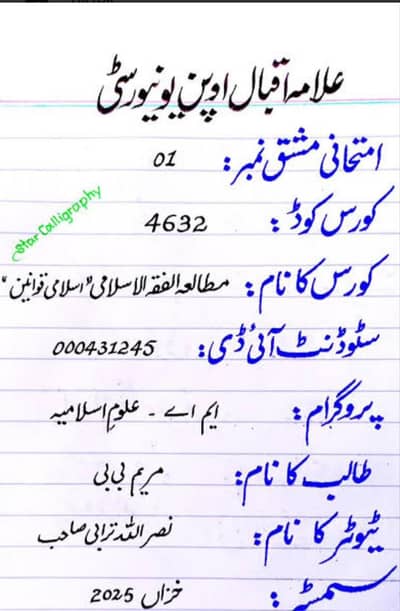 علامہ اقبال اوپن یونیورسٹی
امتحانی مشق نمبر: 01
کورس کوڈ: 4632
Star Calligraphy
کورس کا نام: مطالعہ الفقہ الاسلامی "اسلامی قوانین"
سٹوڈنٹ آئی ڈی: 000431245
پروگرام: ایم اے - علوم اسلامیہ
طالب کا نام: مریم بی بی
ٹیوٹر کا نام: نصر اللہ ترابی صاحب
سمسٹر: خزاں 2025